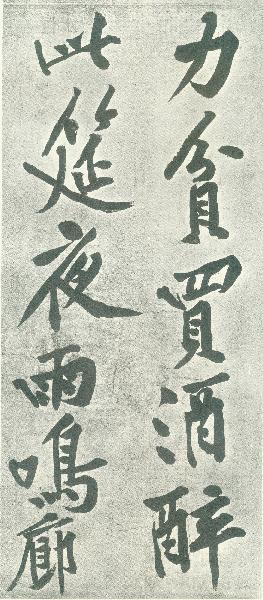 力貧買酒醉
此筵夜雨鳴廊